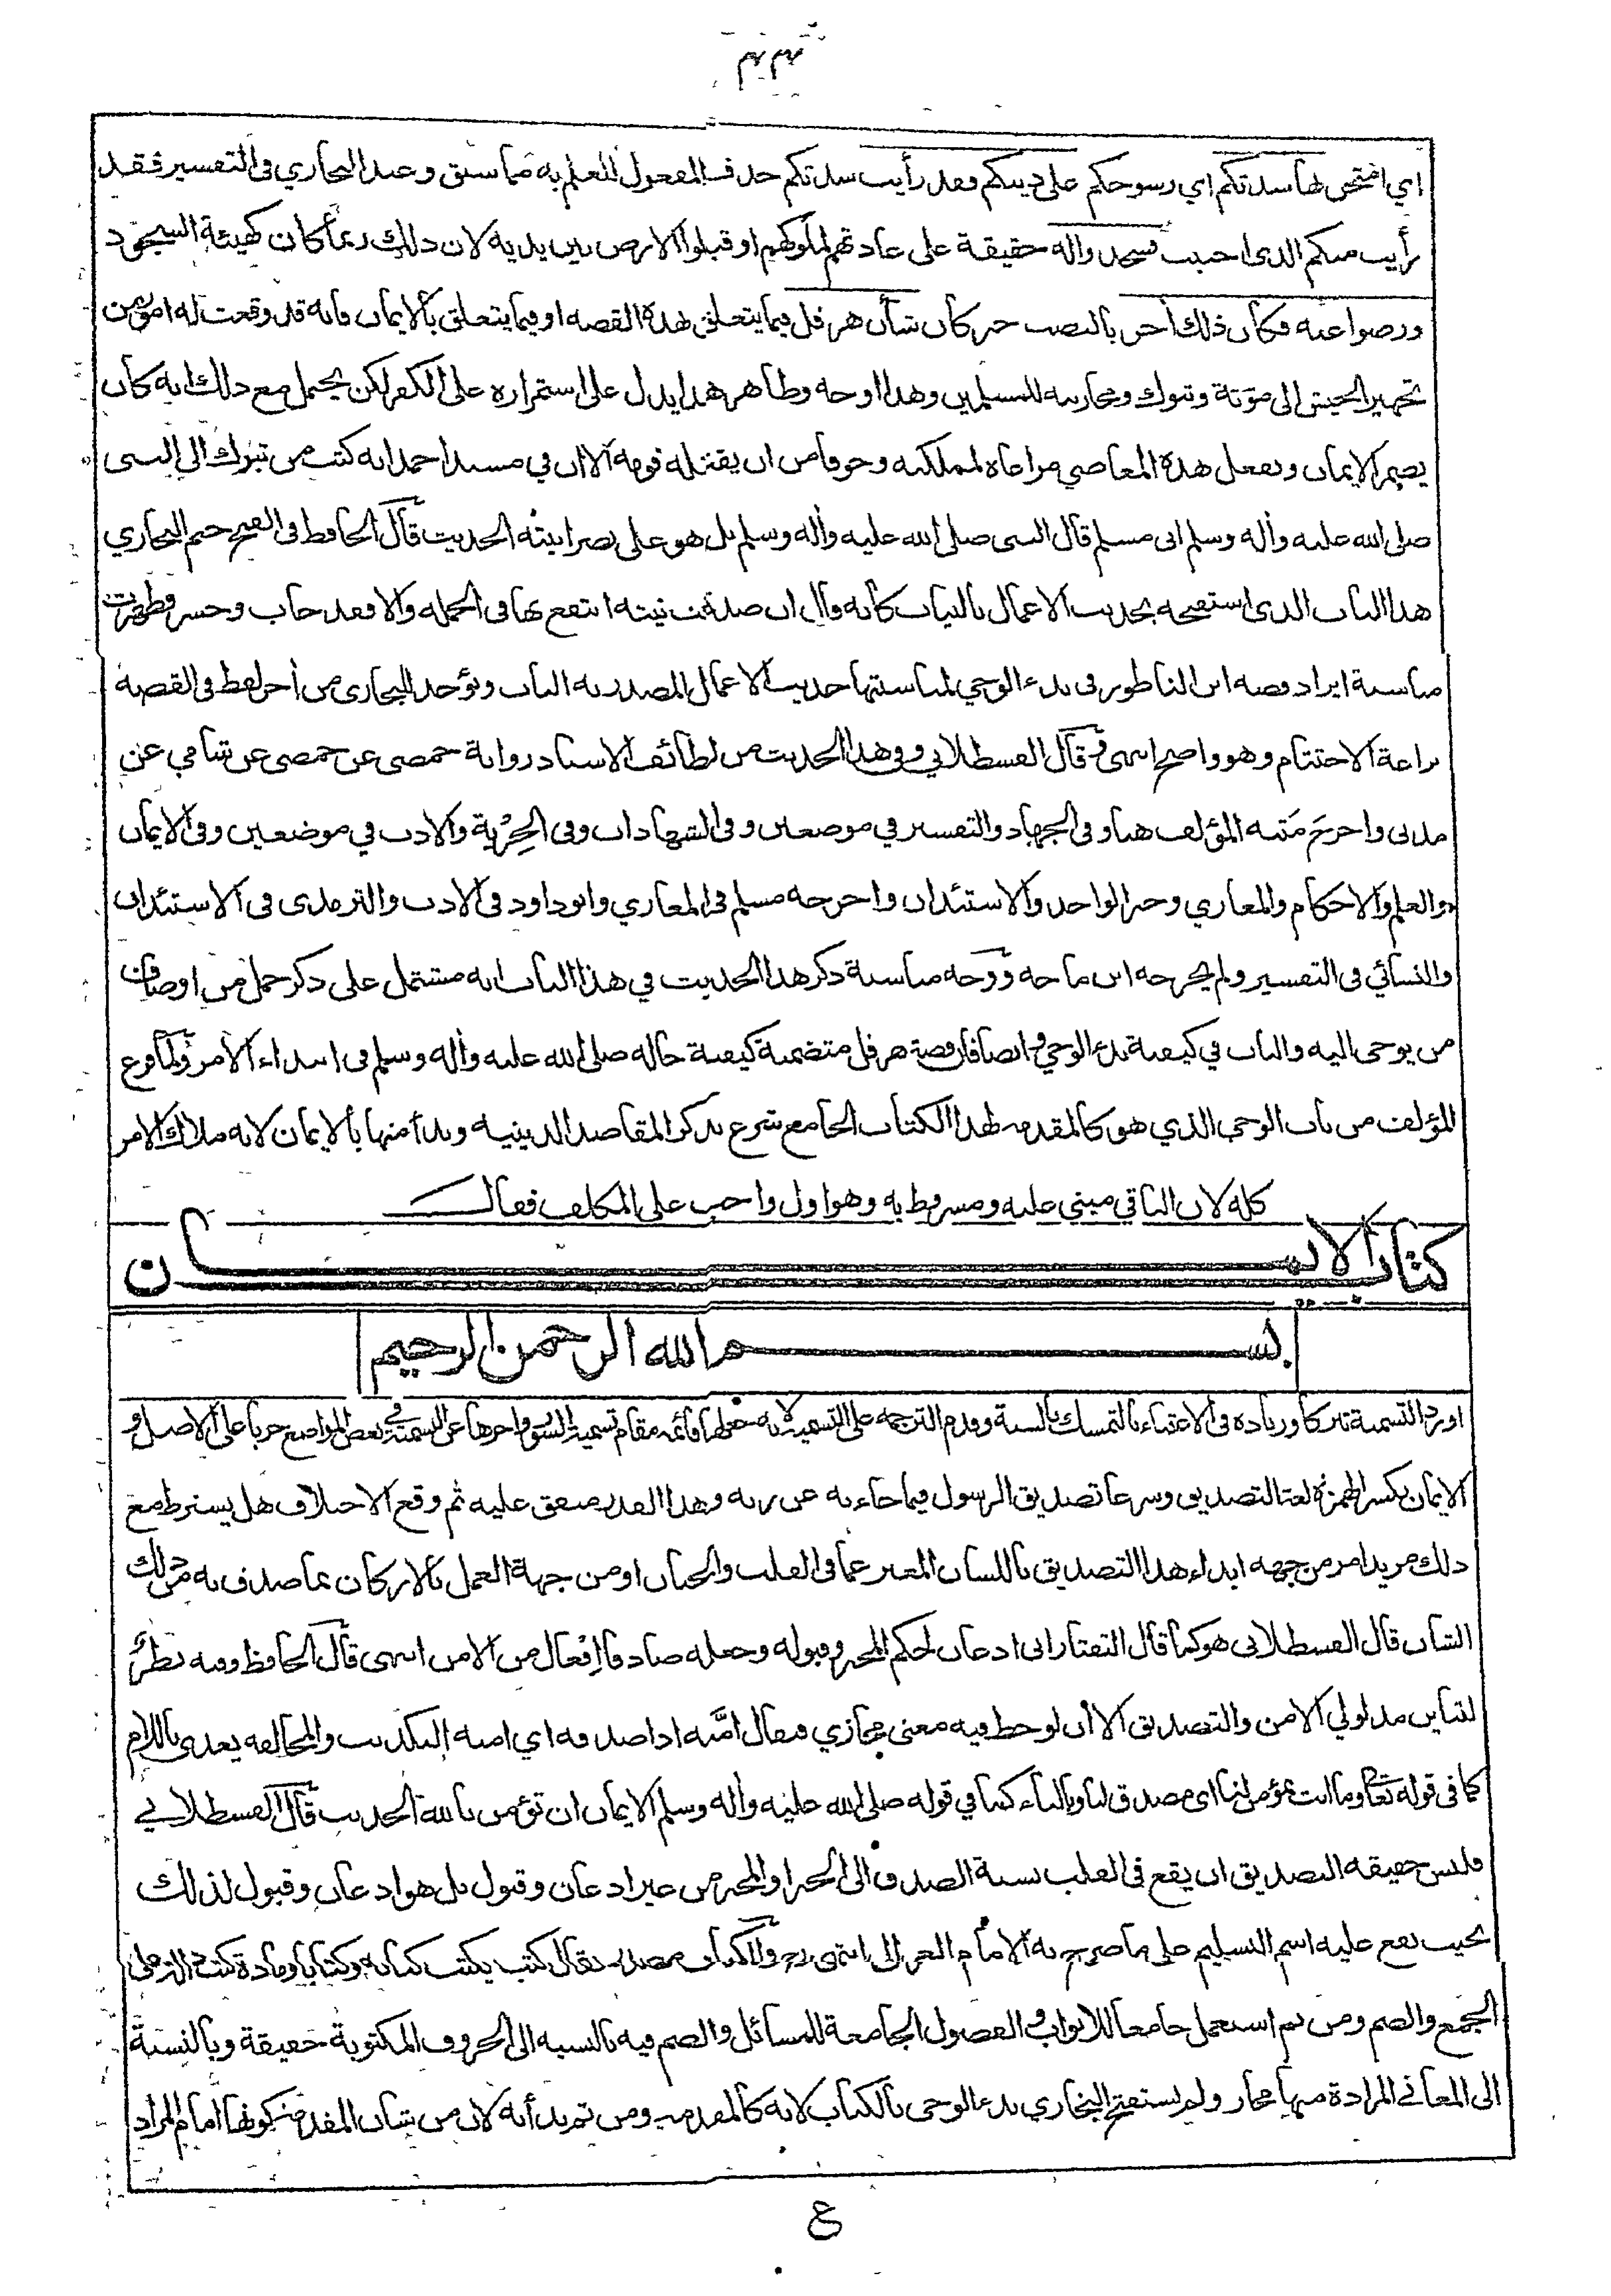 اي امتحن بها شدتكم اي رسوخكم على دينكم فقد رأيت شدتكم حذف المفعول للعلم به مما سبق وعند البخاري في التفسير فقد
رأيت منكم الذي احببت فسجدوا له حقيقة على عادتهم لملوكهم او قبلوا الارض بين يديه لان ذلك ربما كان كهيئة السجود
ورضوا عنه فكان ذلك آخر بالنصب خبر كان شأن هرقل فيما يتعلق بهذه القصه او فيما يتعلق بالايمان فانه قد وقعت له امور من
تجهيز الجيش الى مؤتة وتبوك ومحاربته للمسلمين وهذا اوجه وظاهر هذا يدل على استمراره على الكفر لكن يحتمل مع ذلك انه كان
يضمر الايمان ويفعل هذه المعاصي مراعاة لمملكته وخوفا من ان يقتله قومه الا ان في مسند احمد انه كتب من تبوك الى النبي
صلى الله عليه وآله وسلم اني مسلم قال النبي صلى الله عليه وآله وسلم بل هو على نصرانيته الحديث قال الحافظ في الفتح ختم البخاري
هذا الباب الذي استفتحه بحديث الاعمال بالنيات كانه قال ان صدقت نيته انتفع بها في الجمله والا فقد خاب وخسر فظهرت
مناسبة ايراد قصه ابن الناطور في بدء الوحي لمناسبتها حديث الاعمال المصدر به الباب ويؤخذ للبخاري من آخر لفظ في القصة
براعة الاختتام وهو واضح انتهى قال القسطلاني وفي هذا الحديث من لطائف الاسناد رواية حمصي عن حمصي عن شامي عن
مدني واخرج متنه المؤلف هنا وفي الجهاد والتفسير في موضعين وفي الشهادات وفي الجزية والادب في موضعين وفي الايمان
والعلم والاحكام والمغازي وخبر الواحد والاستئذان واخرجه مسلم في المغازي وابو داود في الادب والترمذي في الاستئذان
والنسائي في التفسير ولم يخرجه ابن ماجه ووجه مناسبة ذكر هذا الحديث في هذا الباب انه مشتمل على ذكر جمل من اوصاف
من يوحى اليه والباب في كيفية بدء الوحي وايضا فان قصة هرقل متضمنة كيفية حاله صلى الله عليه وآله وسلم في ابتداء الامر ولما فرغ
المؤلف من باب الوحي الذي هو كالمقدمه لهذا الكتاب الجامع شرع يذكر المقاصد الدينيه وبدأ منها بالايمان لانه ملاك الامر
كله لان الباقي مبني عليه ومشروط به وهو اول واجب على المكلف فقال
كتاب الايمان
بسم الله الرحمن الرحيم
اورد التسمية تبركا وزيادة في الاعتناء بالتمسك بالسنة وقدم الترجمه على التسمية لانه جعلها قائمه مقام تسمية السورة واخرها عن التسمية في بعض المواضع جريا على الاصل و
الايمان بكسر الهمزة لغة التصديق وشرعا تصديق الرسول فيما جاء به عن ربه وهذا القدر متفق عليه ثم وقع الاختلاف هل يشترط مع
ذلك مزيد امر من جهه ابداء هذا التصديق باللسان المعبر عما في القلب والجنان او من جهة العمل بالاركان بما صدق به من ذلك
الشان قال القسطلاني هو كما قال التفتازاني اذعان لحكم المخبر وقبوله وجعله صادقا افعال من الامن انتهى قال الحافظ وفيه نظر
لتباين مدلولي الامن والتصديق الا ان لوحظ فيه معنى مجازي فيقال امنه اذا صدقه اي امنه التكذيب والمخالفه يعدى باللام
كما في قوله تعالى وما انت بمؤمن لنا اى مصدق لنا وبالباء كما في قوله صلى الله عليه وآله وسلم الايمان ان تؤمن بالله الحديث قال القسطلاني
فليس حقيقه التصديق ان يقع في القلب نسبة الصدق الى الخبر او المخبر من غير اذعان وقبول بل هو اذعان وقبول لذلك
بحيث يقع عليه اسم التسليم على ما صرح به الامام الغزالى انتهى والكتاب مصدر يقال كتب يكتب كتابه وكتابا ومادة كتب دالة على
الجمع والضم ومن ثم استعمل جامعا للابواب والفصول الجامعة للمسائل والضم فيه بالنسبه الى الحروف المكتوبة حقيقة وبالنسبة
الى المعاني المرادة منها مجاز ولم يستفتح البخاري بدء الوحى بالكتاب لانه كالمقدمه ومن ثم بدأ به لان من شأن المقدمة كونها امام المراد
ع